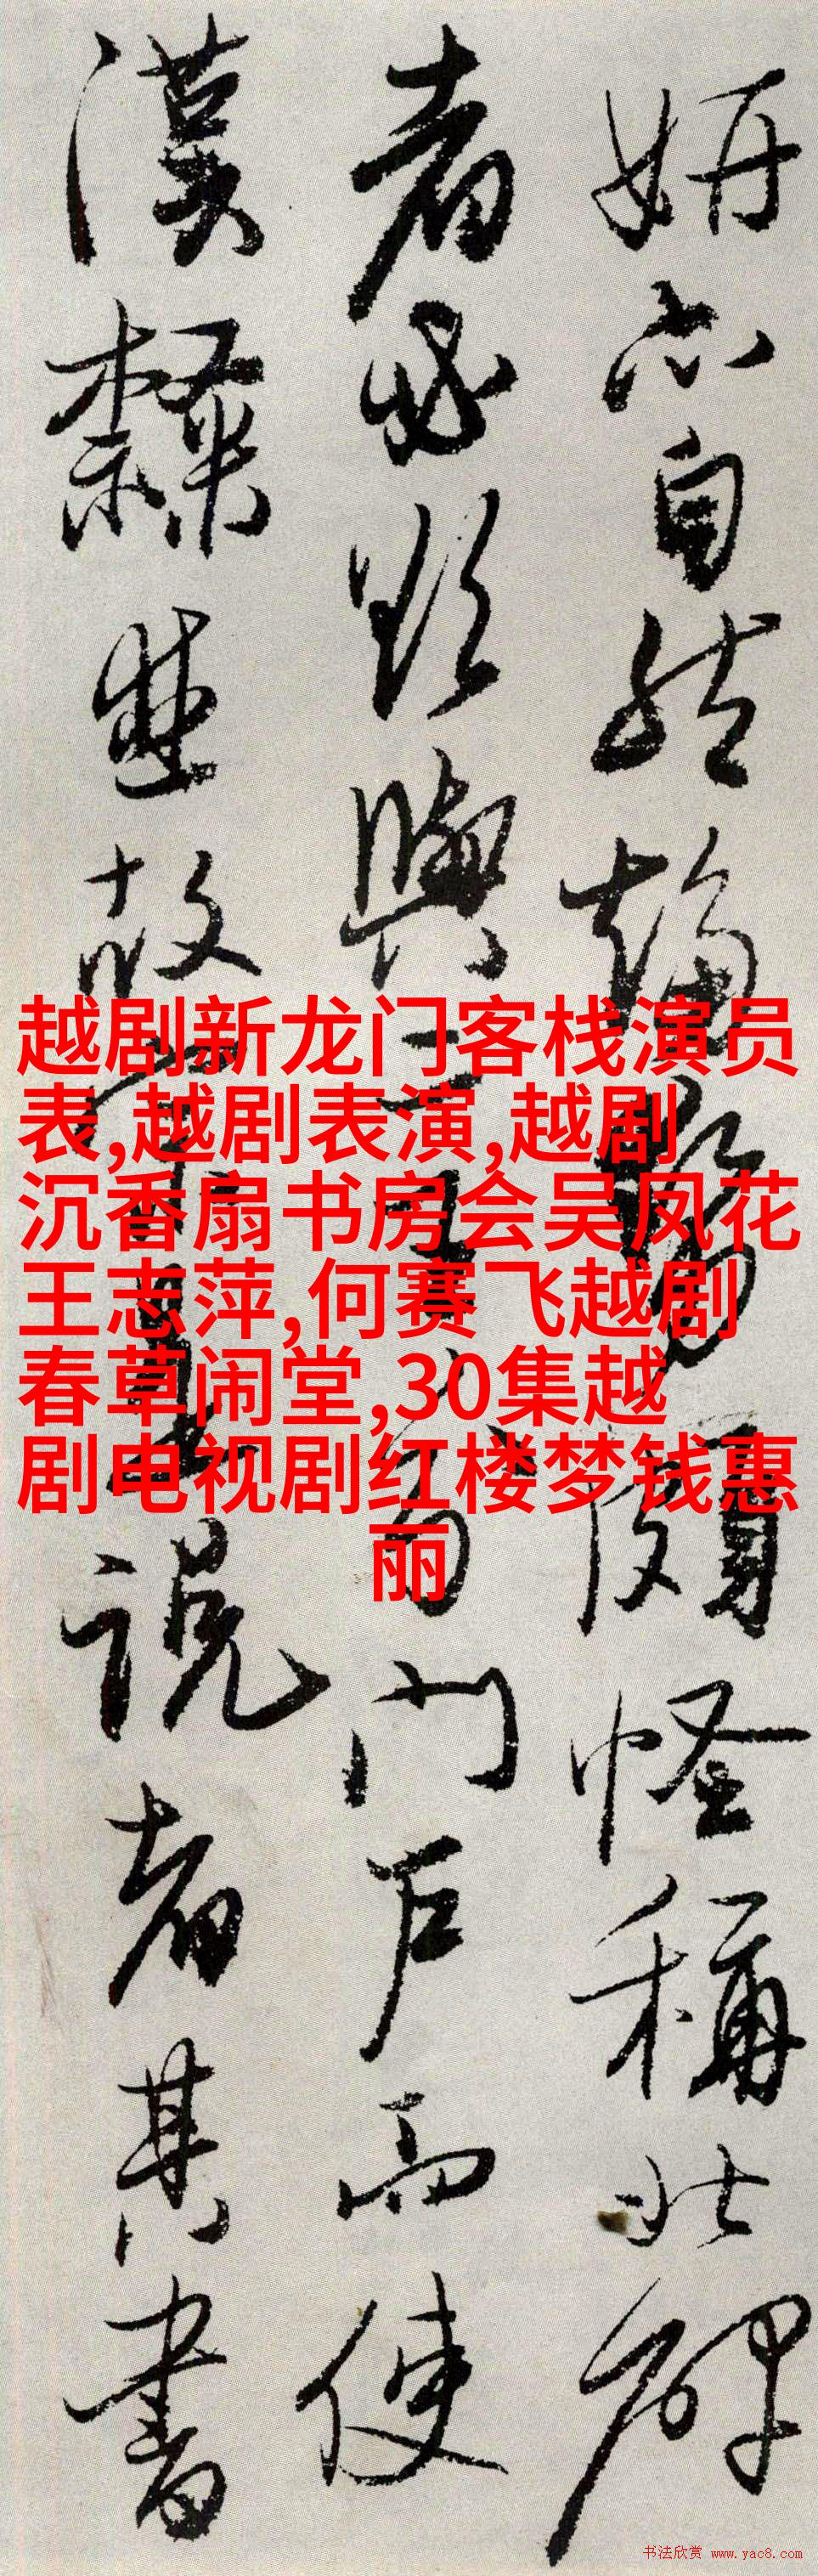 妍亦自然
頗怪稱北碑
者
欲與二王
門戶而使
漢隸
故
說者其書
越剧新龙门客栈演员
表,越剧表演,越剧
沉香扇书房会吴凤花
王志萍,何赛飞越剧
春草闹堂,30集越
剧电视剧红楼梦钱惠
丽
书法欣赏 www.yac8.com